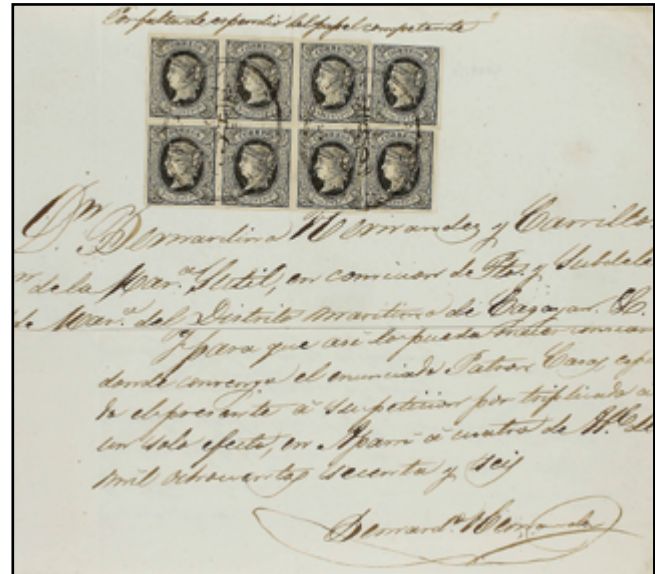 Por falta de expendio del papel competente
CORREOS
Dn Bernardino Hernandez y Carrillo
de la Mar.a Sutil, en comision de Pto. y Subdele
de Mar.a del Distrito maritimo de Cagayan. &.
Y para que asi lo pueda hacer
donde convenga el enunciado Patron Casas
do el presente á su peticion por triplicado a
un solo efecto, en Aparri á cuatro de
mil ochocientos sesenta y seis
Bernardo. Hernandez